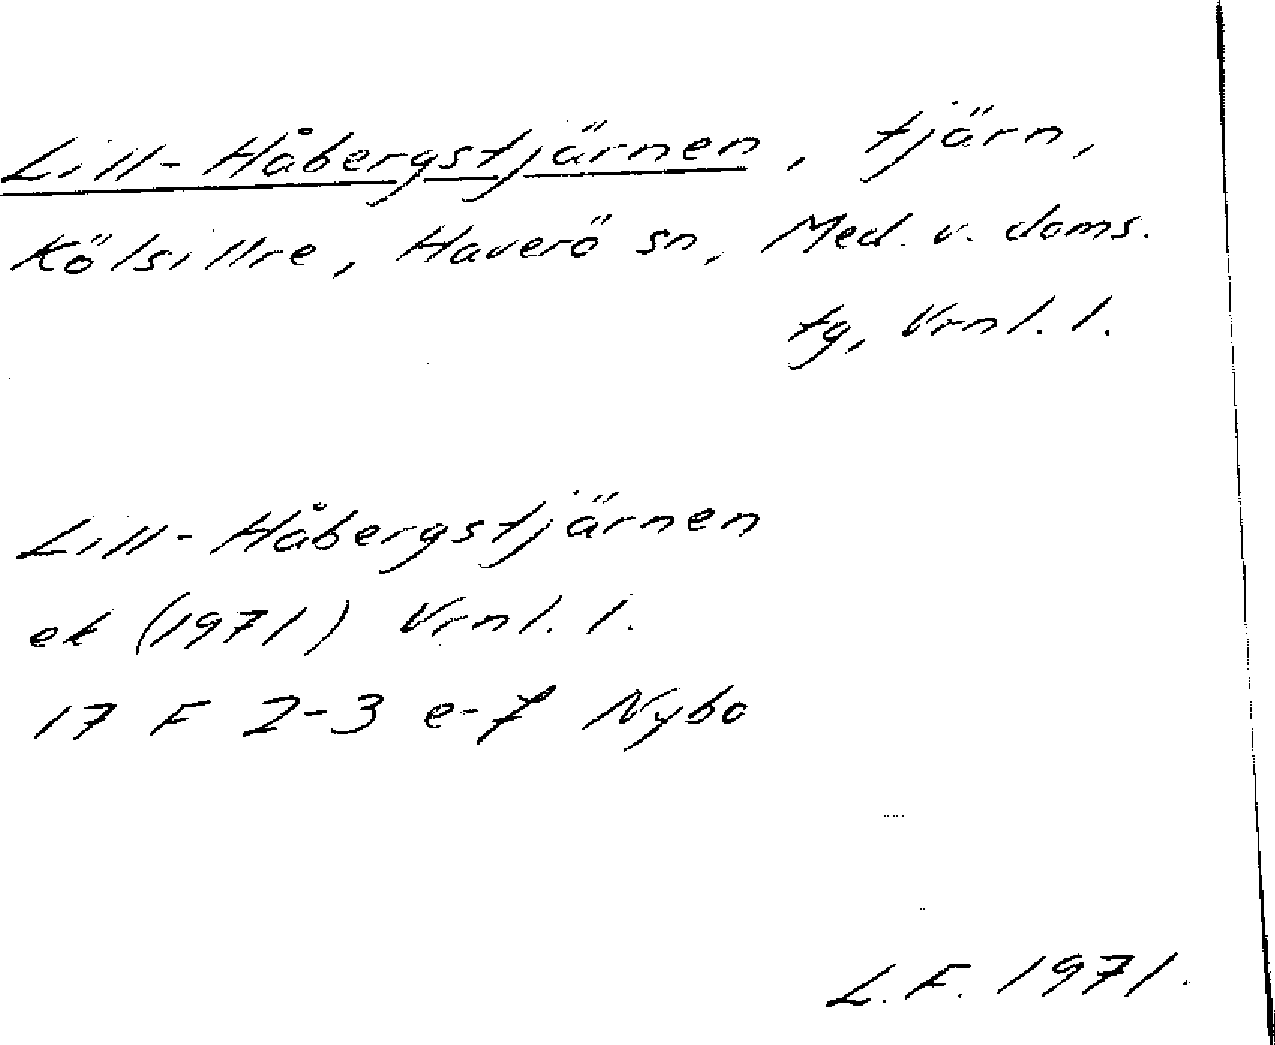 Lill-Håbergstjärnen, tjärn,
Kölsillre, Haverö sn, Med. v. doms.
tg, Vrnl. l.
Lill-Håbergstjärnen
ek (1971) Vrnl. l.
17 F 2-3 e-f Nybo
L.F. 1971.